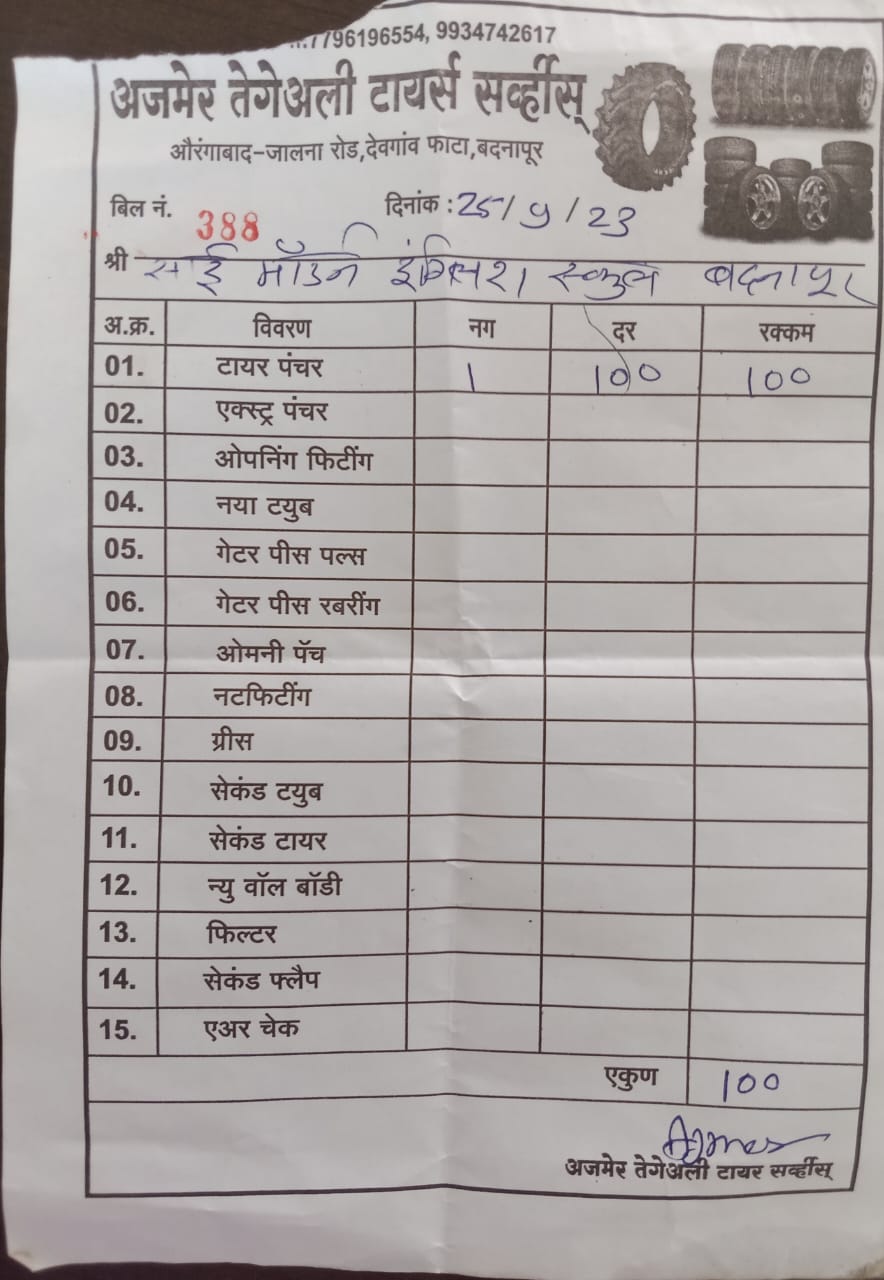 7796196554, 9934742617
अजमेर तेगेअली टायर्स सर्व्हीस्
औरंगाबाद-जालना रोड,देवगांव फाटा,बदनापूर
बिल नं. 388 दिनांक : 25/9/23
श्री साई मॉडर्न इंग्लिश स्कुल बदनापूर
अ.क्र. विवरण नग दर रक्कम
01. टायर पंचर 1 100 100
02. एक्स्ट्र पंचर
03. ओपनिंग फिटींग
04. नया टयुब
05. गेटर पीस पल्स
06. गेटर पीस रबरींग
07. ओमनी पॅच
08. नटफिटींग
09. ग्रीस
10. सेकंड टयुब
11. सेकंड टायर
12. न्यु वॉल बॉडी
13. फिल्टर
14. सेकंड फ्लैप
15. एअर चेक
एकुण 100
अजमेर तेगेअली टायर सर्व्हीस्